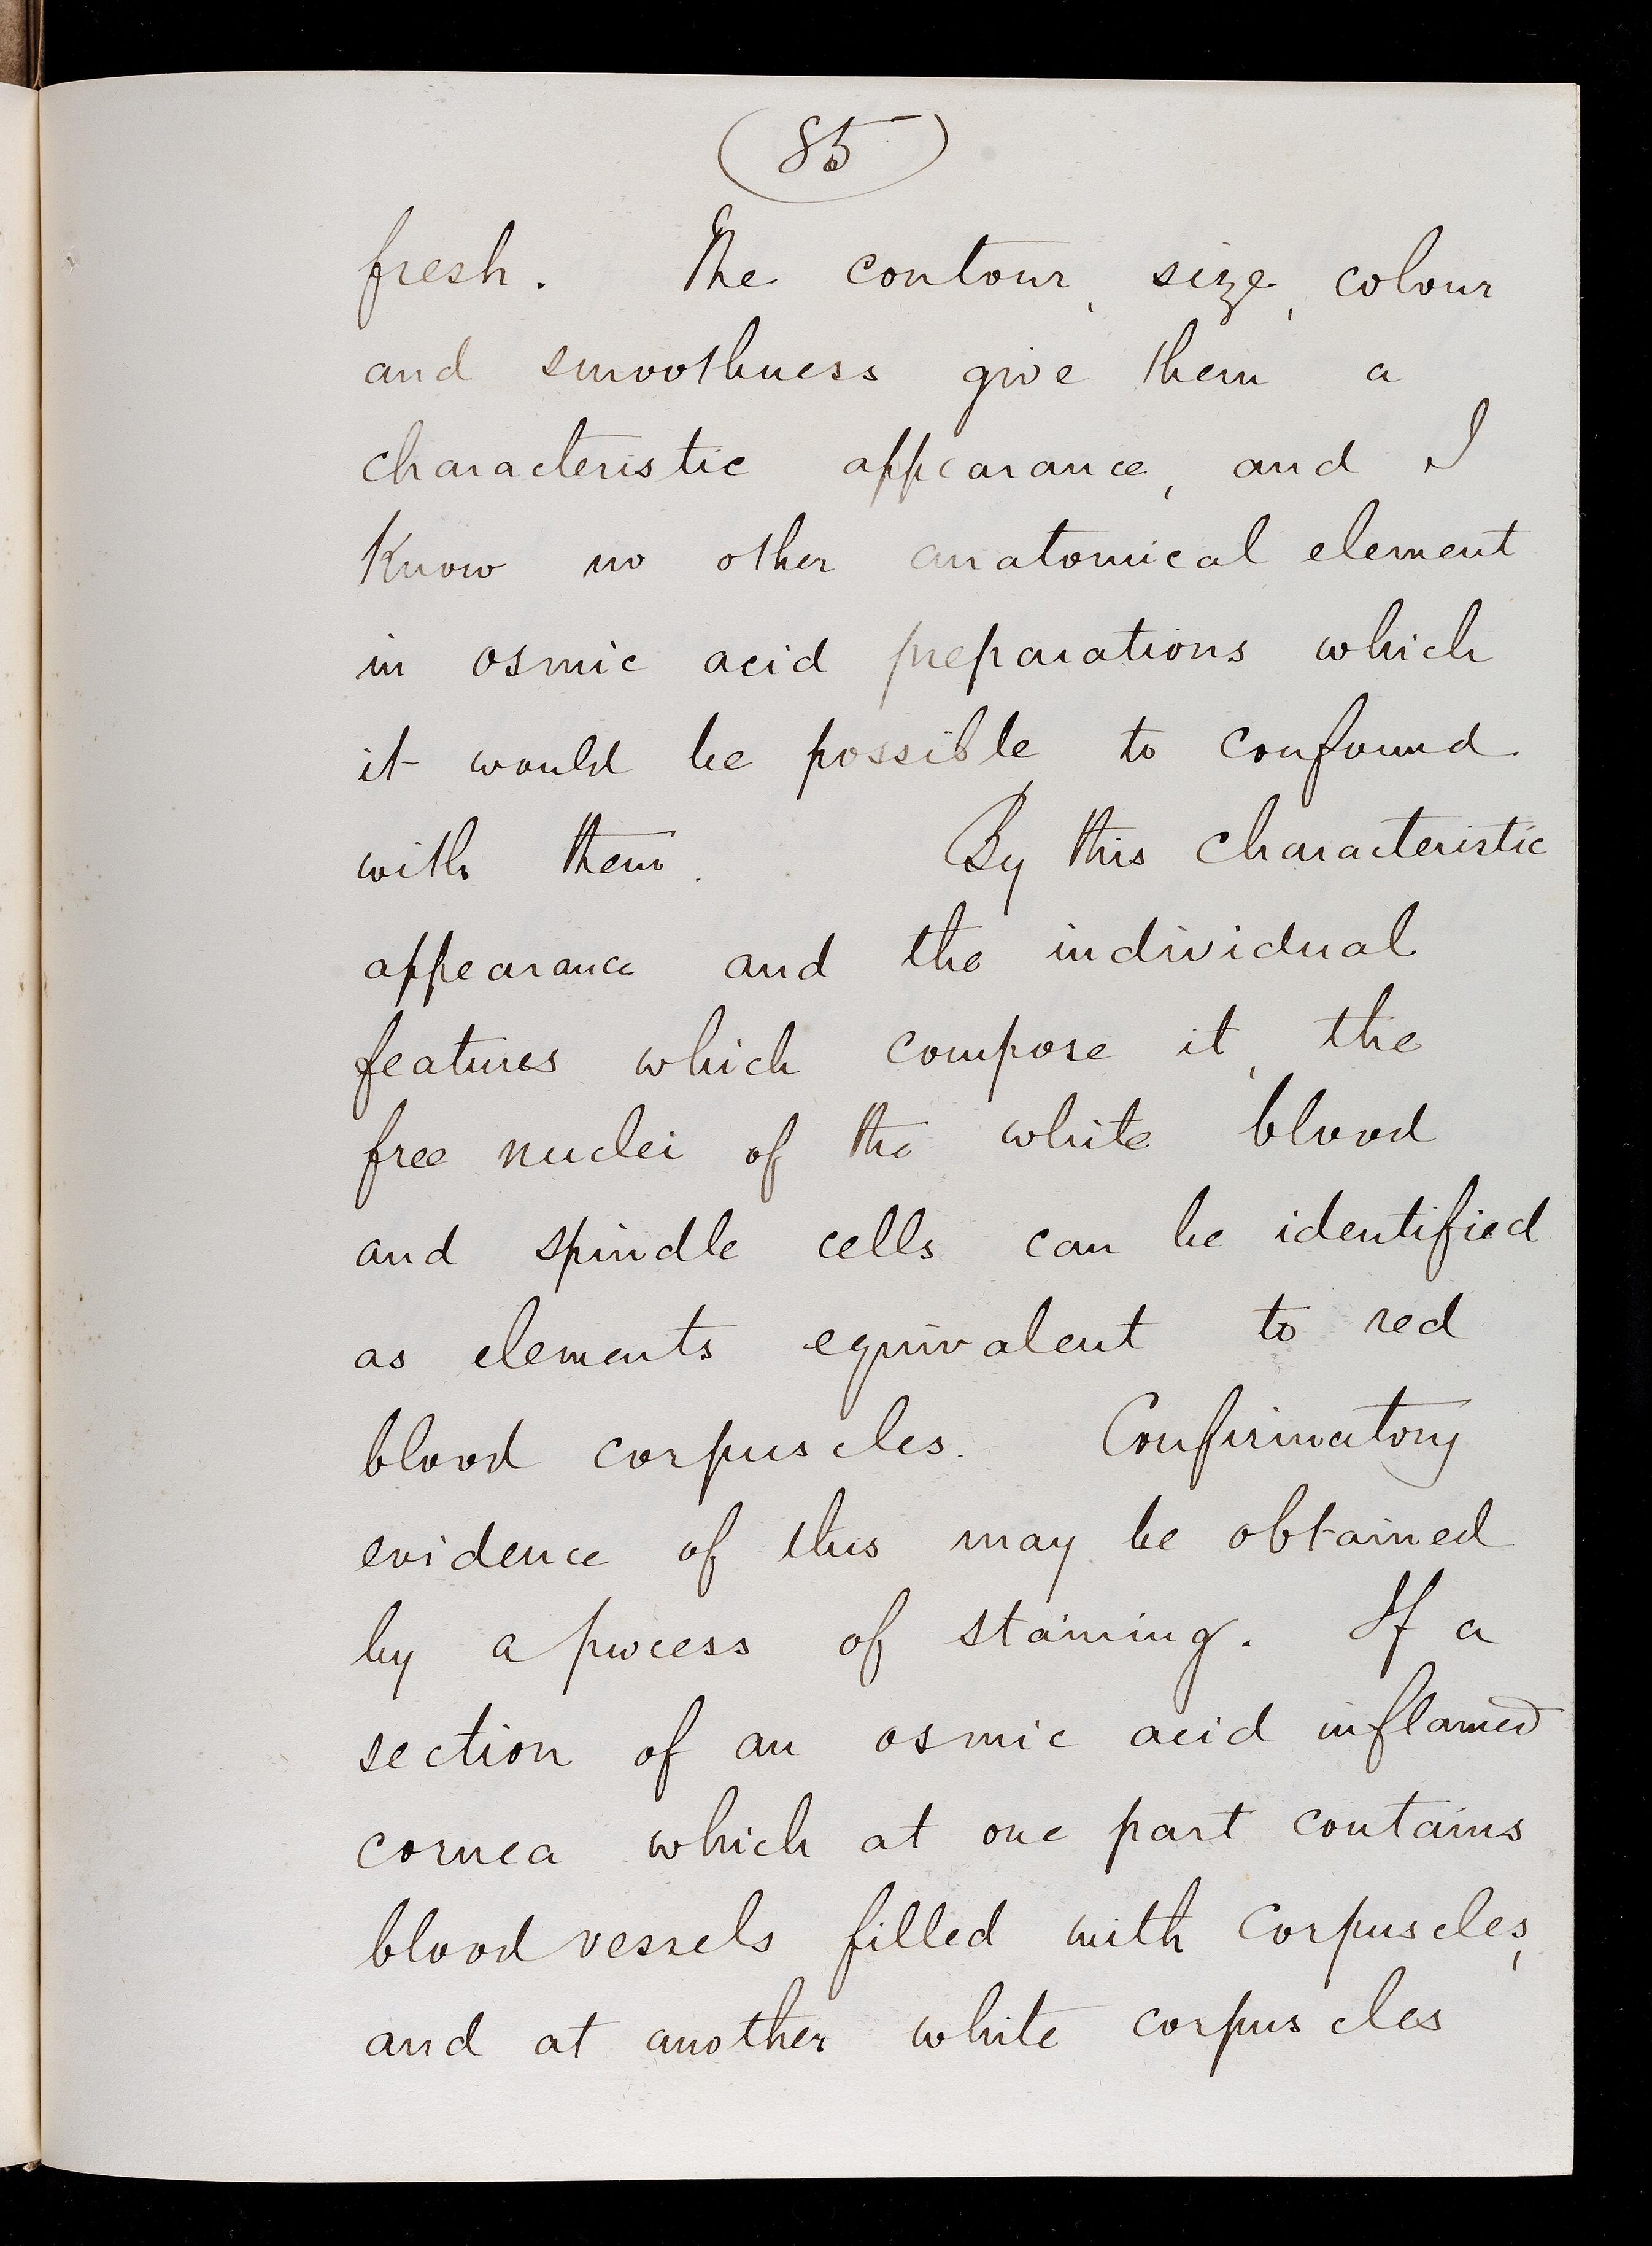 (85)
fresh. The contour, size, colour
and smoothness give them a
characteristic appearance, and I
know no other anatomical element
in osmic acid preparations which
it would be possible to confound
with them. By this characteristic
appearance and the individual
features which compose it, the
free nuclei of the white blood
and spindle cells can be identified
as elements equivalent to red
blood corpuscles. Confirmatory
evidence of this may be obtained
by a process of staining. If a
section of an osmic acid inflamed
cornea which at one part contains
blood vessels filled with corpuscles,
and at another white corpuscles